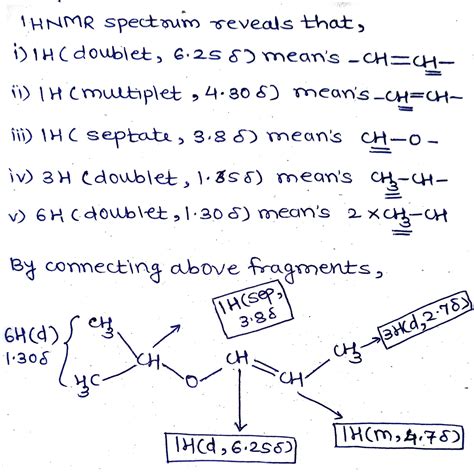 1HNMR spectrum reveals that,
i) 1H (doublet, 6.25 δ) mean's -CH=CH-
ii) 1H (multiplet, 4.30 δ) mean's -CH=CH-
iii) 1H (septate, 3.8 δ) mean's CH-O-
iv) 3H (doublet, 1.85δ) mean's CH3-CH-
v) 6H (doublet, 1.30 δ) mean's 2×CH3-CH
By connecting above fragments,
1H(sep, 3.8δ
6H(d) 1.30δ
CH3
H3C
CH
O
CH
CH
CH3
3H(d, 2.7δ)
1H(d, 6.25δ)
1H(m, 4.7δ)